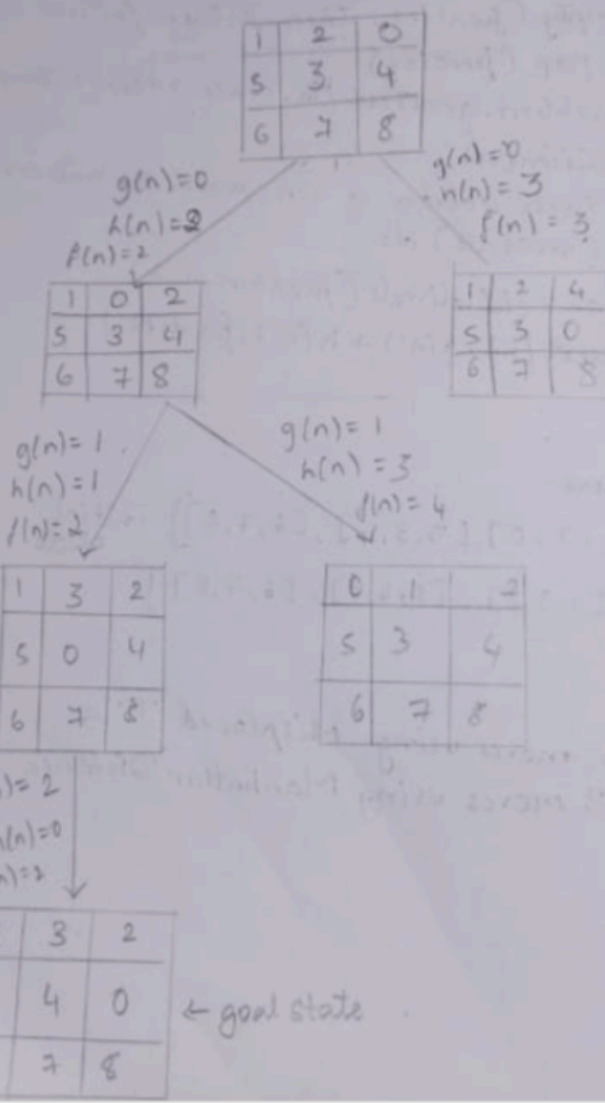 1 2 0
5 3 4
6 7 8
g(n)=0
h(n)=2
f(n)=2
g(n)=0
h(n)=3
f(n)=3
1 0 2
5 3 4
6 7 8
1 2 4
5 3 0
6 7 8
g(n)=1
h(n)=1
f(n)=2
g(n)=1
h(n)=3
f(n)=4
1 3 2
5 0 4
6 7 8
0 1 2
5 3 4
6 7 8
)=2
h(n)=0
n)=2
3 2
4 0
7 8
← goal state